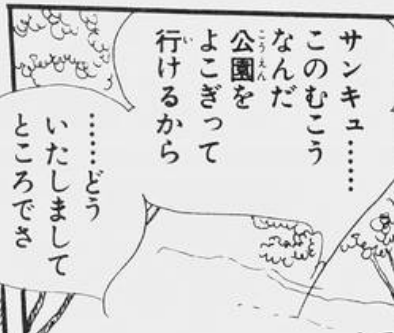 サンキュ……
このむこう
なんだ
公園を
よこぎって
行けるから
……どう
いたしまして
ところでさ